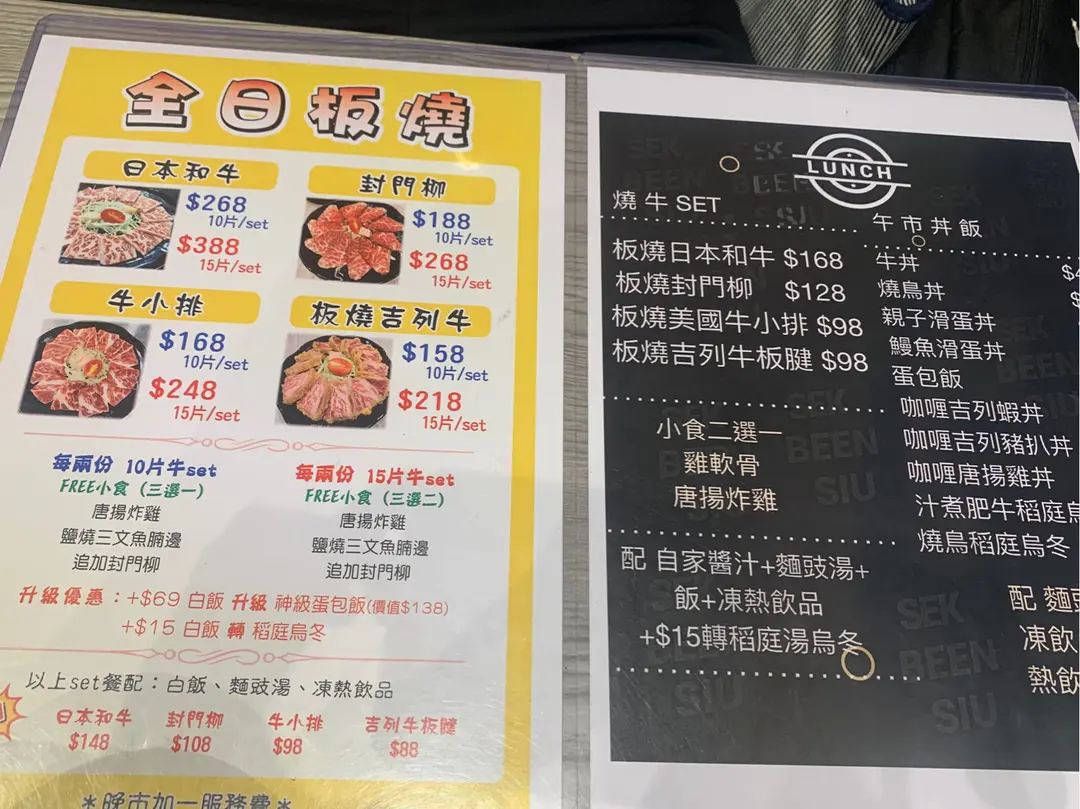 全日板燒
日本和牛
$268
10片/set
$388
15片/set
封門柳
$188
10片/set
$268
15片/set
牛小排
$168
10片/set
$248
15片/set
板燒吉列牛
$158
10片/set
$218
15片/set
每兩份 10片牛set
FREE小食（三選一）
唐揚炸雞
鹽燒三文魚腩邊
追加封門柳
每兩份 15片牛set
FREE小食（三選二）
唐揚炸雞
鹽燒三文魚腩邊
追加封門柳
升級優惠：+$69 白飯 升級 神級蛋包飯(價值$138)
+$15 白飯 轉 稻庭烏冬
以上set餐配：白飯、麵豉湯、凍熱飲品
日本和牛 封門柳 牛小排 吉列牛板腱
$148 $108 $98 $88
*晚市加一服務費*
LUNCH
燒牛SET
板燒日本和牛 $168
板燒封門柳 $128
板燒美國牛小排 $98
板燒吉列牛板腱 $98
小食二選一
雞軟骨
唐揚炸雞
配 自家醬汁+麵豉湯+
飯+凍熱飲品
+$15轉稻庭湯烏冬
午市丼飯
牛丼
燒鳥丼
親子滑蛋丼
鰻魚滑蛋丼
蛋包飯
咖喱吉列蝦丼
咖喱吉列豬扒丼
咖喱唐揚雞丼
汁煮肥牛稻庭烏
燒鳥稻庭烏冬
配 麵豉
凍飲
熱飲
SEK
BEEN
SIU